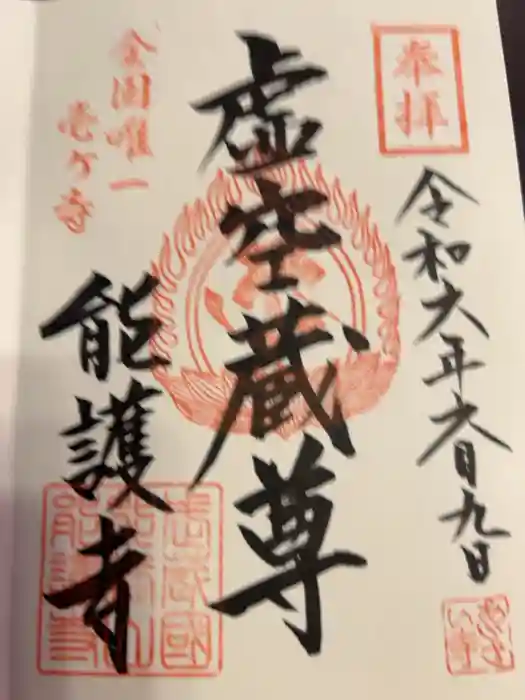 奉拝
令和六年六月九日
虚空蔵尊
全国唯一
壱ヶ寺
能護寺